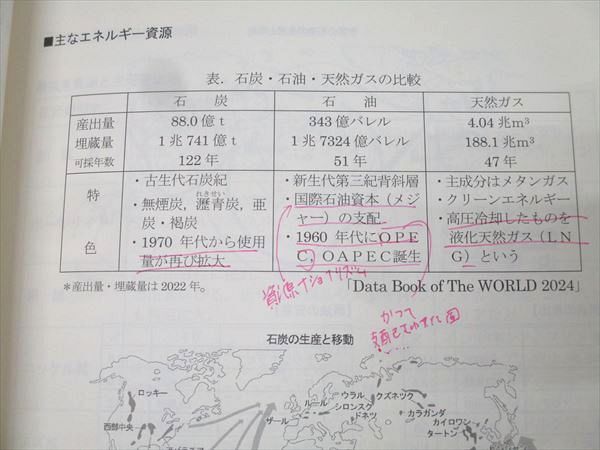 ■主なエネルギー資源
表．石炭・石油・天然ガスの比較
石　炭　石　油　天然ガス
産出量　88.0億t　343億バレル　4.04兆m³
埋蔵量　1兆741億t　1兆7324億バレル　188.1兆m³
可採年数　122年　51年　47年
特色
・古生代石炭紀
・無煙炭，瀝青炭，亜
れきせい
炭・褐炭
・1970年代から使用
量が再び拡大
・新生代第三紀背斜層
・国際石油資本（メジ
ャー）の支配
・1960年代にOPE
C，OAPEC誕生
・主成分はメタンガス
・クリーンエネルギー
・高圧冷却したものを
液化天然ガス（LN
G）という
＊産出量・埋蔵量は2022年。
「Data Book of The WORLD 2024」
資源ナショナリズム
かつて
国
石炭の生産と移動
ロッキー
西部中央
ルール
ザール
ウラル
シロンスク
ドネツ
クズネック
カラガンダ
カイロワン
タートン